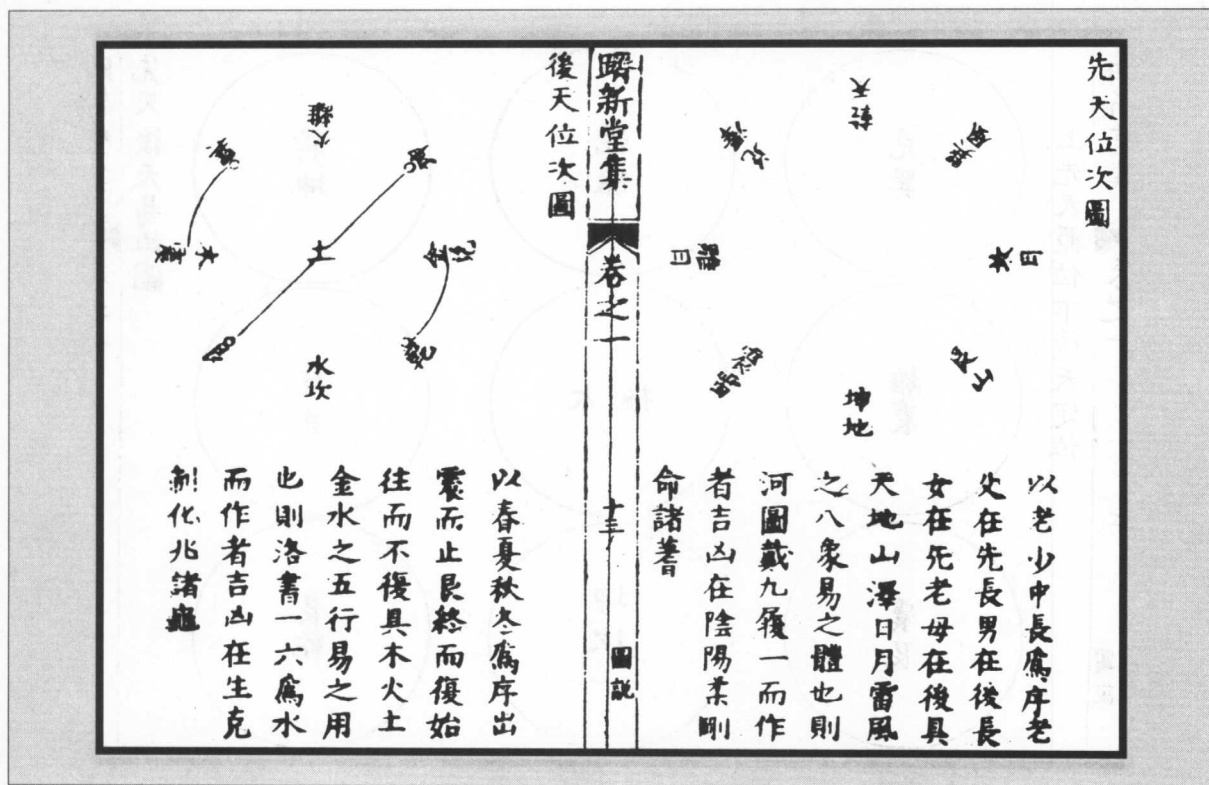 先天位次圖
乾天
兌澤
離日
震雷
巽風
坎月
艮山
坤地
以老少中長爲序老
父在先長男在後長
女在先老母在後具
天地山澤日月雷風
之八象易之體也則
河圖戴九履一而作
者吉凶在陰陽柔剛
命諸蓍
新堂集
卷之一
十三
圖說
後天位次圖
火離
土
金兌
木震
水坎
以春夏秋冬爲序出
震而止艮終而復始
往而不復具木火土
金水之五行易之用
也則洛書一六爲水
而作者吉凶在生克
制化兆諸龜